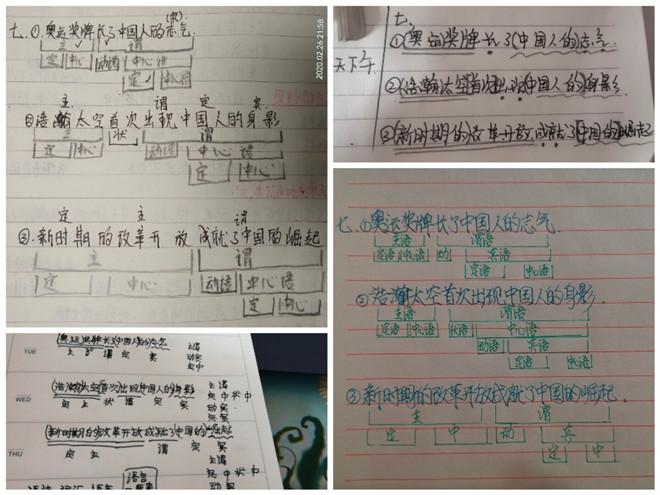 (宾)
七、①奥运奖牌长了中国人的志气
主 谓
定 中心 动语 中心语
定 中心语
主 谓 定 宾
②浩瀚太空首次出现中国人的身影
主 状 谓
定 中心 动语 中心语
定 中心
定 主 谓
③新时期的改革开放成就了中国的崛起
主 谓
定 中心 动语 中心语
定 中心
2020.02.26 21:58
七、
①奥运奖牌长了(中国人的)志气
天下午
②(浩瀚)太空首次出现(中国人的)身影
③(新时期的)改革开放成就了(中国的)崛起
TUE
(奥运)奖牌长了(中国人的)志气
主 谓 定 宾
主谓
动宾
定中
WED
(浩瀚)太空[首次]出现(中国人的)身影
定 主 状 谓 定 宾
主谓
定中 状中
动宾
定中
THU
(新时期的)改革开放成就了(中国的)崛起
定 主 谓 定 宾
主谓
定中
动宾
七、①奥运奖牌长了中国人的志气.
主语 谓语
定语 中心语 动 宾语
定语 中心语
②浩瀚太空首次出现中国人的身影.
主语 谓语
定语 中心语 状语 中心语
动语 宾语
定语 中心语
③新时期的改革开放成就了中国的崛起.
主 谓
定 中 动 宾
定 中